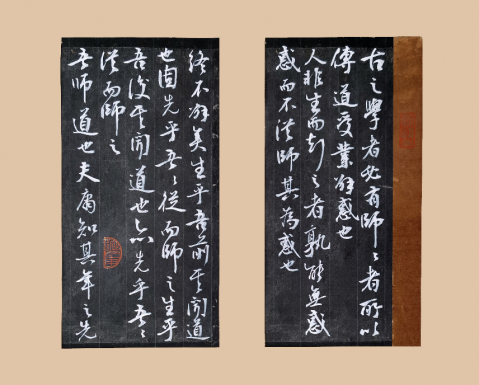 古之學者必有師〻者所以
傳道受業解惑也
人非生而知之者孰能無惑
惑而不從師其為惑也
終不解矣生乎吾前其聞道
也固先乎吾〻從而師之生乎
吾後其聞道也亦先乎吾〻
從而師之
吾師道也夫庸知其年之先